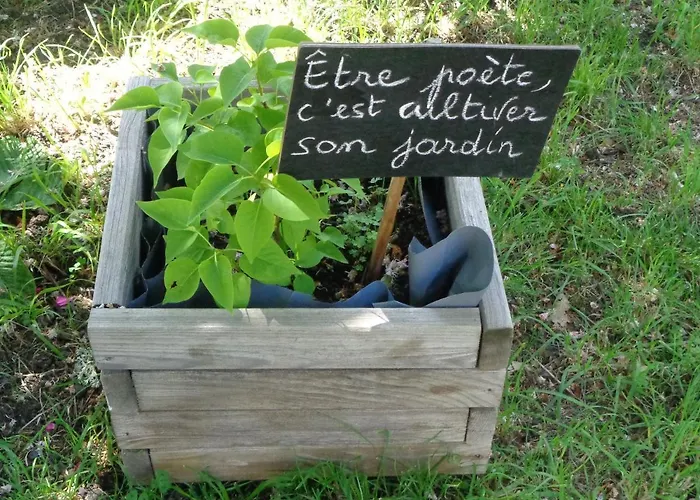 Être poète,
c'est cultiver
son jardin